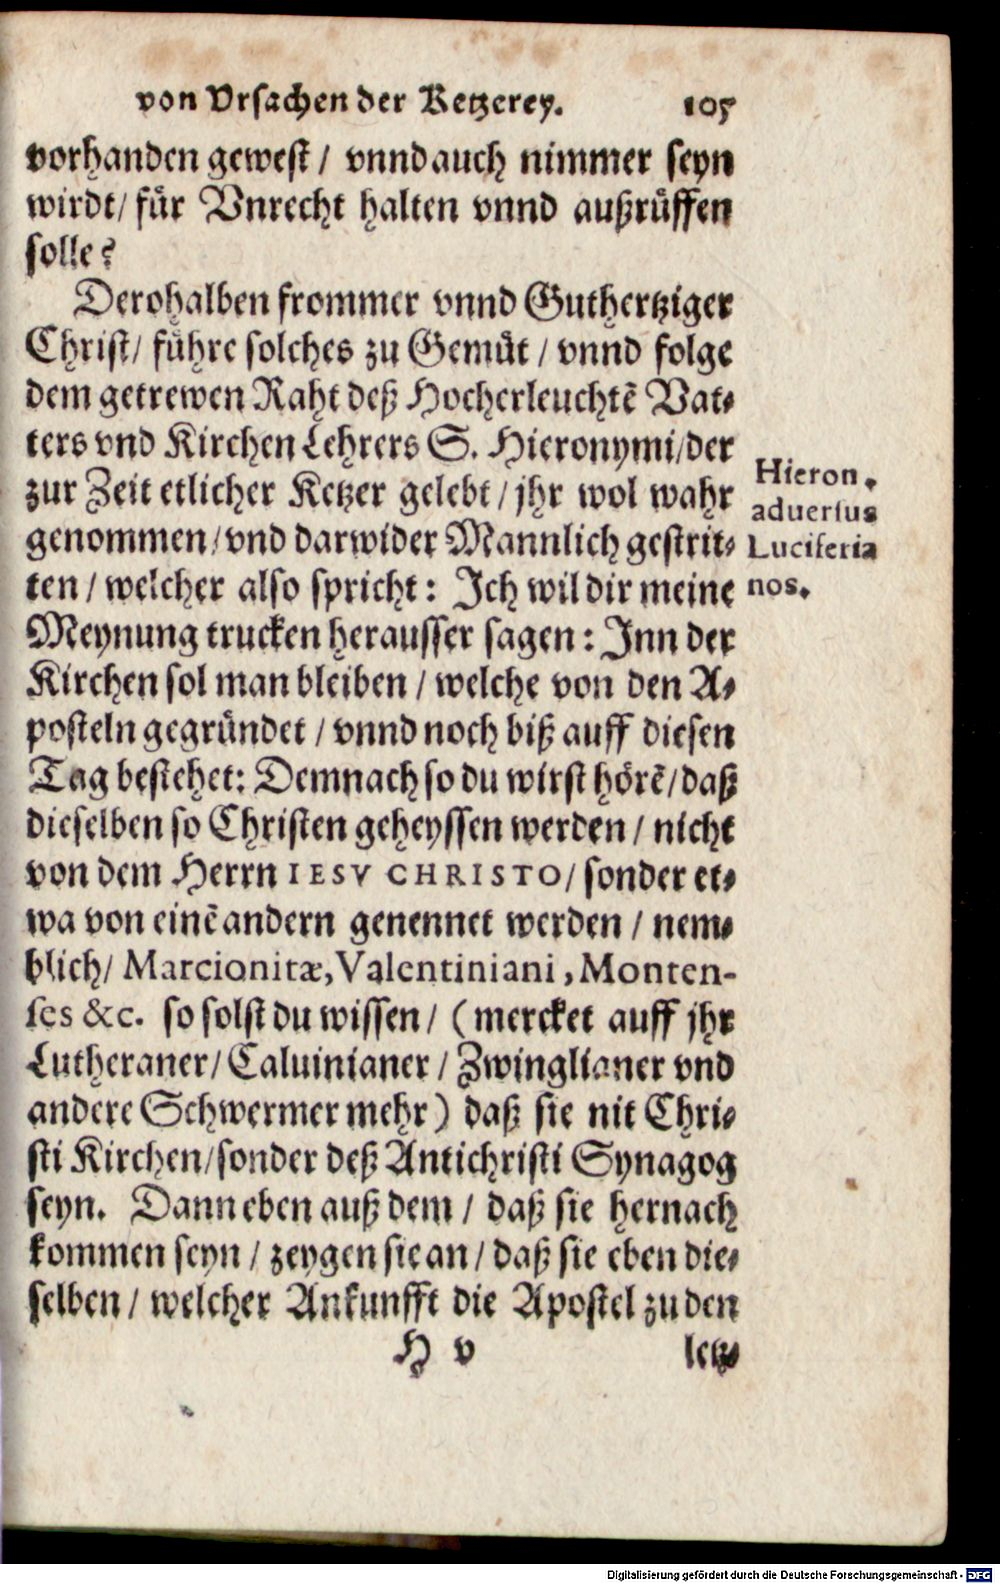 von Vrsachen der Ketzerey. 105
vorhanden gewest / vnnd auch nimmer seyn
wirdt / für Vnrecht halten vnnd außrüffen
solle?
Derohalben frommer vnnd Guthertziger
Christ / führe solches zu Gemüt / vnnd folge
dem getrewen Raht deß Hocherleuchtẽ Vat-
ters vnd Kirchen Lehrers S. Hieronymi / der
zur Zeit etlicher Ketzer gelebt / jhr wol wahr
genommen / vnd darwider Mannlich gestrit-
ten / welcher also spricht: Ich wil dir meine
Meynung trucken herausser sagen: Inn der
Kirchen sol man bleiben / welche von den A-
posteln gegründet / vnnd noch biß auff diesen
Tag bestehet: Demnach so du wirst hörẽ / daß
dieselben so Christen geheyssen werden / nicht
von dem Herrn IESV CHRISTO / sonder et-
wa von einẽ andern genennet werden / nem-
blich / Marcionitæ, Valentiniani, Monten-
ses &c. so solst du wissen / (mercket auff jhr
Lutheraner / Caluinianer / Zwinglianer vnd
andere Schwermer mehr) daß sie nit Chri-
sti Kirchen / sonder deß Antichristi Synagog
seyn. Dann eben auß dem / daß sie hernach
kommen seyn / zeygen sie an / daß sie eben die-
selben / welcher Ankunfft die Apostel zu den
H v letz-
Hieron.
aduersus
Luciferia
nos.
Digitalisierung gefördert durch die Deutsche Forschungsgemeinschaft - DFG